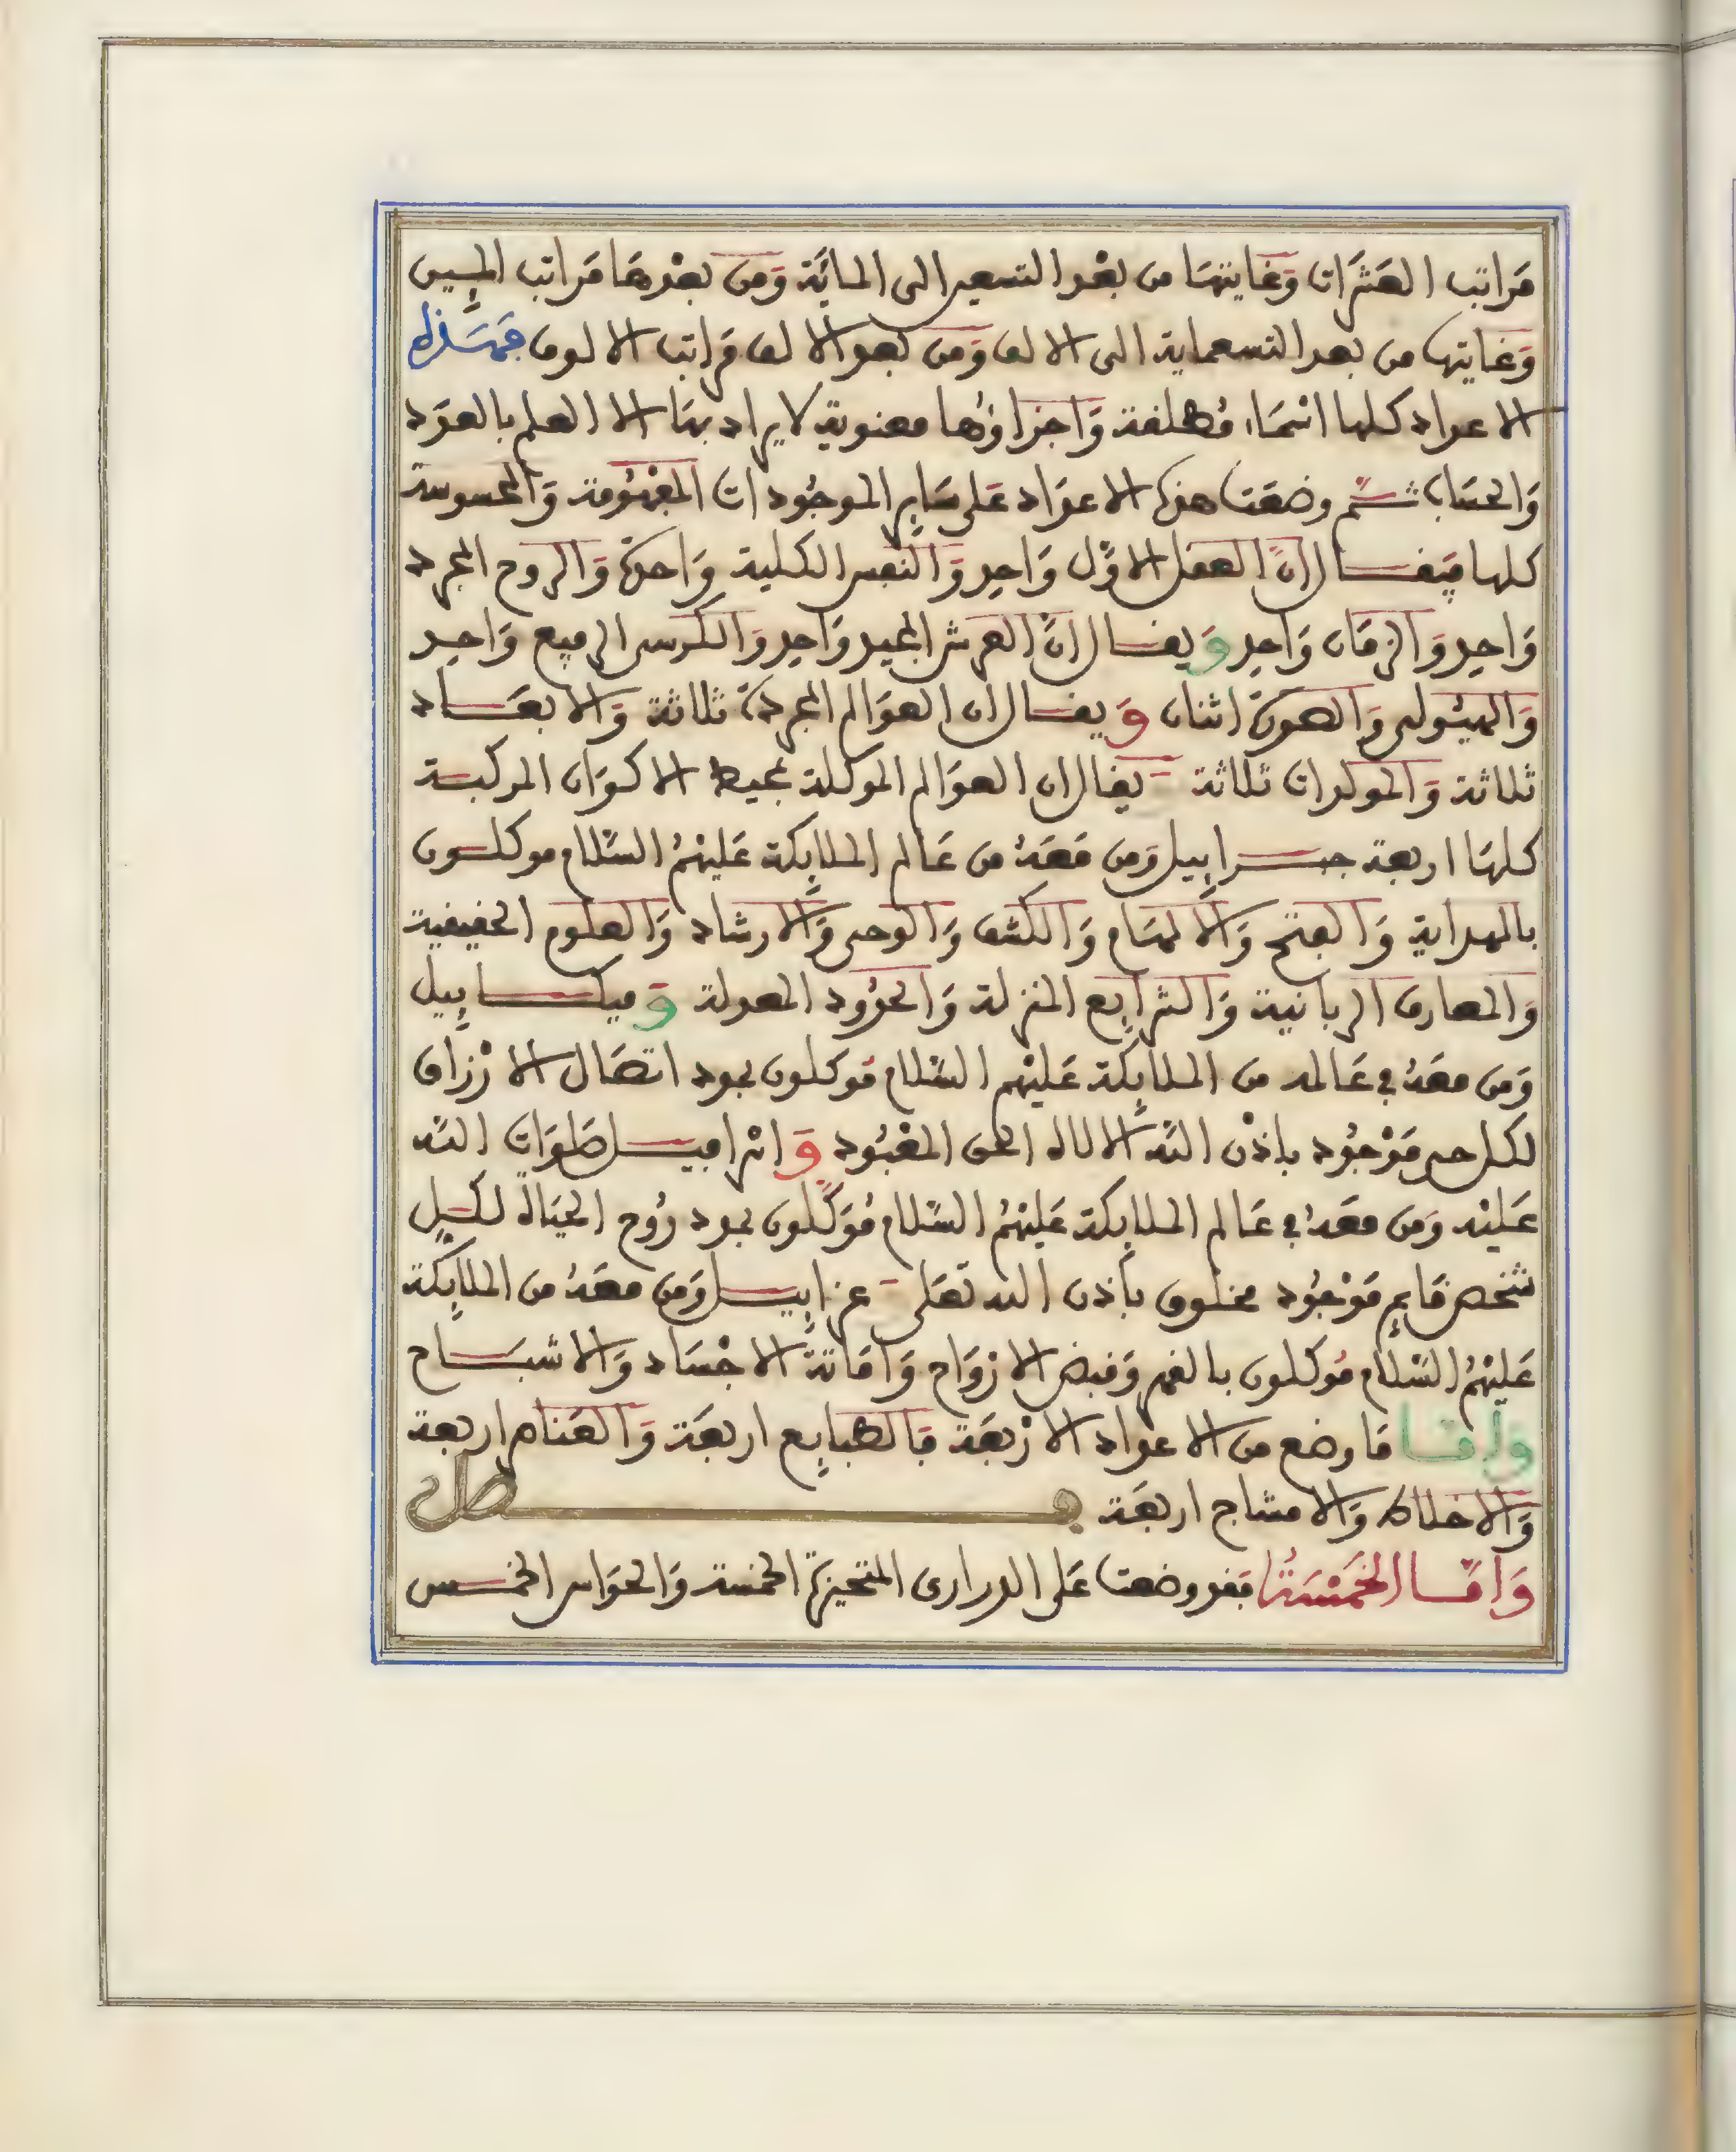 مَراتب العَشَرات وَغايتهَا من بعْد التسعين الى المايَة وَمن بعْدهَا مَراتب المِيين
وَغايتها من بعد التسعماية الى الالف وَمن بعد الالف مَراتب الالوف فهَذه
الاعداد كلها اسْمَاء مُطلقة وَاجزاؤها معنوية لا يراد بهَا الا العلم بالعدَد
وَالحسَاب ثم وضعَت هذه الاعدَاد عَلى سَاير الموجُودات المفهُومة وَالمحسوسة
كلها فيقال ان العقل الاوَّل وَاحِد وَالنفس الكلية وَاحدة وَالروح المجرد
وَاحِد وَالزمَان وَاحِد وَيقال انّ العرش المجيد وَاحِد وَالكرسى الرفيع وَاحِد
وَالهيُولى وَالصورَة اثنان وَيقال ان العوَالم المجردة ثلاثة وَالابعَاد
ثلاثة وَالمولدات ثلاثة يقال ان العوَالم الموكلة بحيط الاكوَان المركبة
كلهَا اربعة جبراييل وَمن مَعَهُ من عَالم الملايكة عَليْهمُ السَّلام موكلون
بالهداية وَالفتح وَالالهَام وَالكشف وَالوحى وَالارشاد وَالعلوم الحقيقية
وَالمعارف الربانية وَالشرايع المنزلة وَالحدُود المعدلة وَميكاييل
وَمن معَهُ في عَالمه من الملايكة عَليْهم السَّلام مُوكلون بجود اتصَال الارْزَاق
لكل حى مَوْجُود باذْن اللَّه الالاه الحق المعْبُود وَاسْرافيل صَلوَات اللَّه
عَليْه وَمن معَهُ في عَالم الملايكة عَليْهمُ السَّلام مُوَكلون بجود رُوح الحيَاة لكل
شخص قَايم مَوْجُود مخلوق باذن الله تعَلى عزراييل وَمن معَهُ من الملايكة
عَليْهمُ السَّلام مُوكلون بالقهر وَقبض الارْوَاح وَامَاتة الاجْسَاد وَالاشبَاح
وامّا مَا وضع من الاعداد الارْبعَة فَالطبايع اربعَة وَالعَناصر اربعة
وَالاخلاط وَالامشاج اربعَة فصل
وَامّا الخمْسَةُ فقد وضعت عَلى الدرارى المتحيزة الخمسة وَالحوَاس الخمس